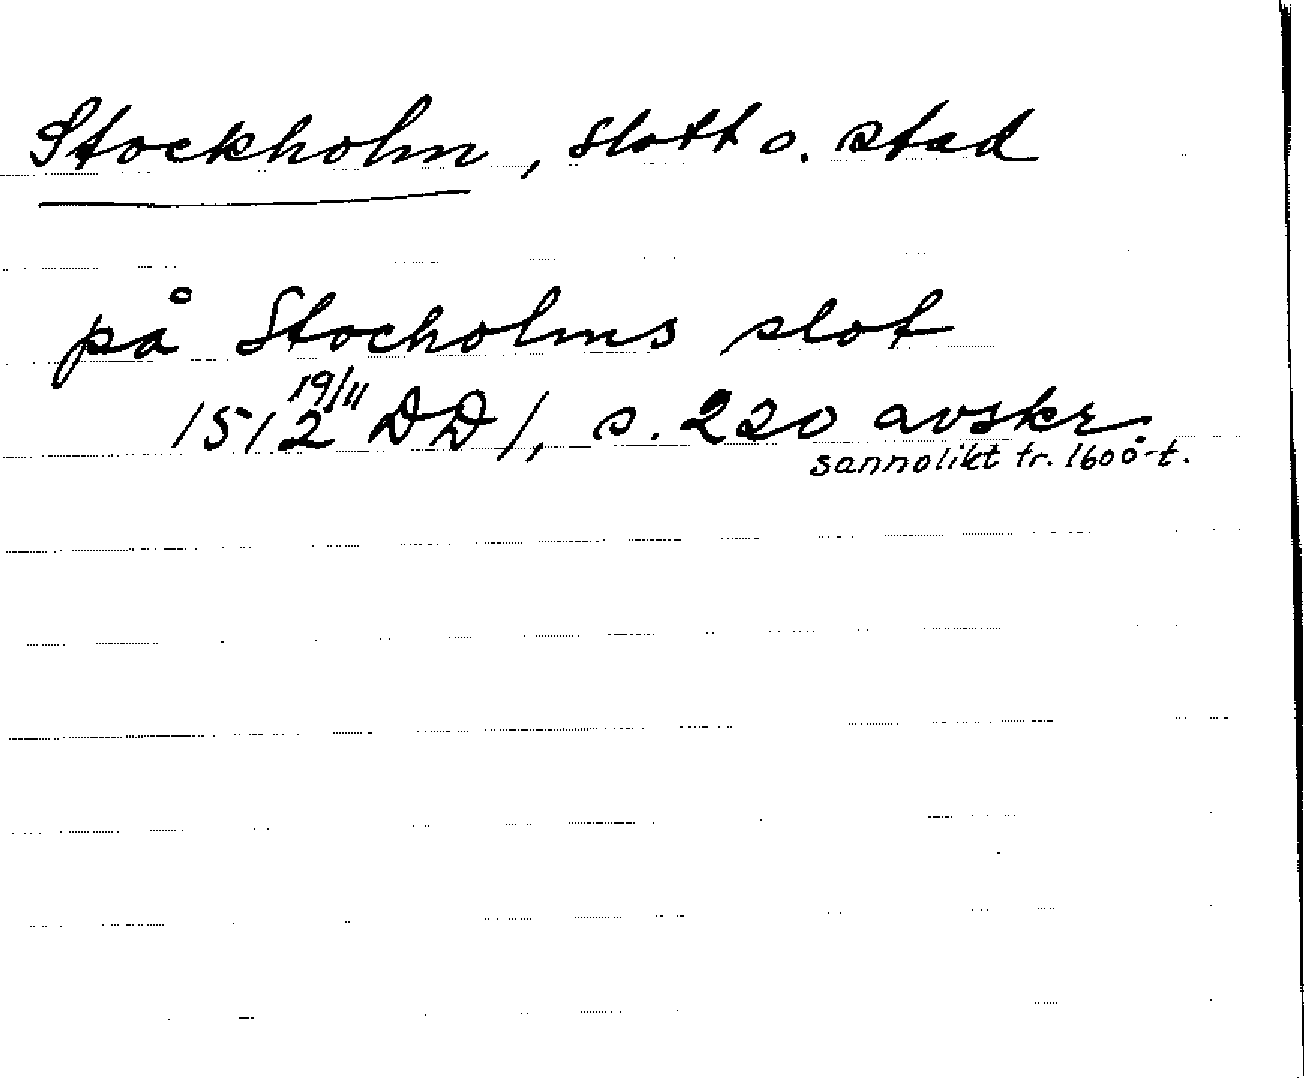 Stockholm, slott o. stad
på Stocholms slot
1512 19/11 DD 1, s. 220 avskr.
sannolikt fr. 1600-t.